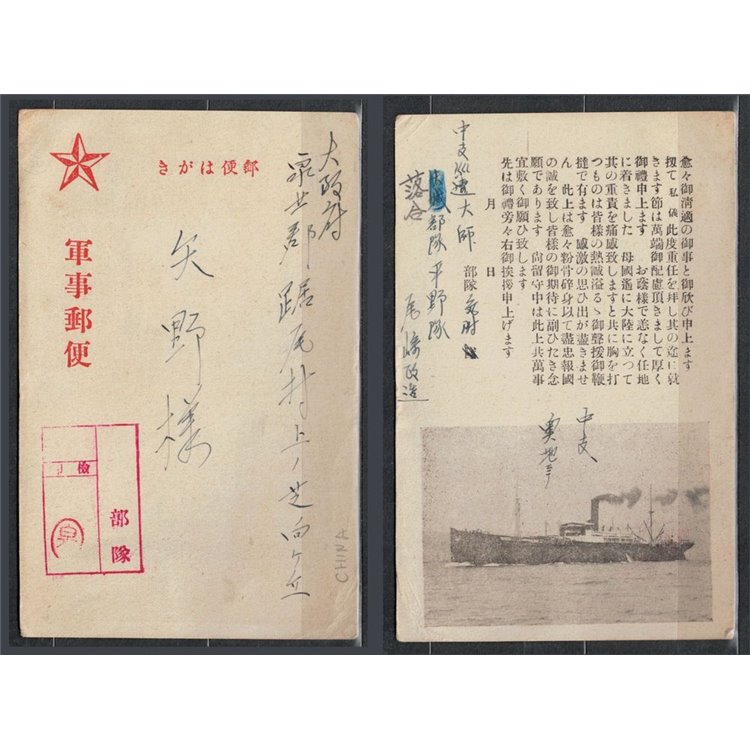 郵便はがき
軍事郵便
大阪府
泉北郡踞尾村上ノ芝向ヶ丘
矢野様
部隊
検
CHINA
愈々御清適の御事と御欣び申上ます
扨て私儀此度重任を拜し其の途に就
きます節は萬端御配慮頂きまして厚く
御禮申上ます お蔭様で恙なく任地
に着きました 母國遙に大陸に立つて
其の重責を痛感致しますと共に胸を打
つものは皆様の熱誠溢るゝ御聲援御鞭
撻で有ます 感激の思ひ出が盡きませ
ん 此上は愈々粉骨碎身以て盡忠報國
の誠を致し皆様の御期待に副ひたき念
願であります 尚留守中は此上共萬事
宜敷く御願ひ致します
先は御禮旁々右御挨拶申上げます
月 日
部隊
中支派遣大師
部隊平野隊
落合
中支